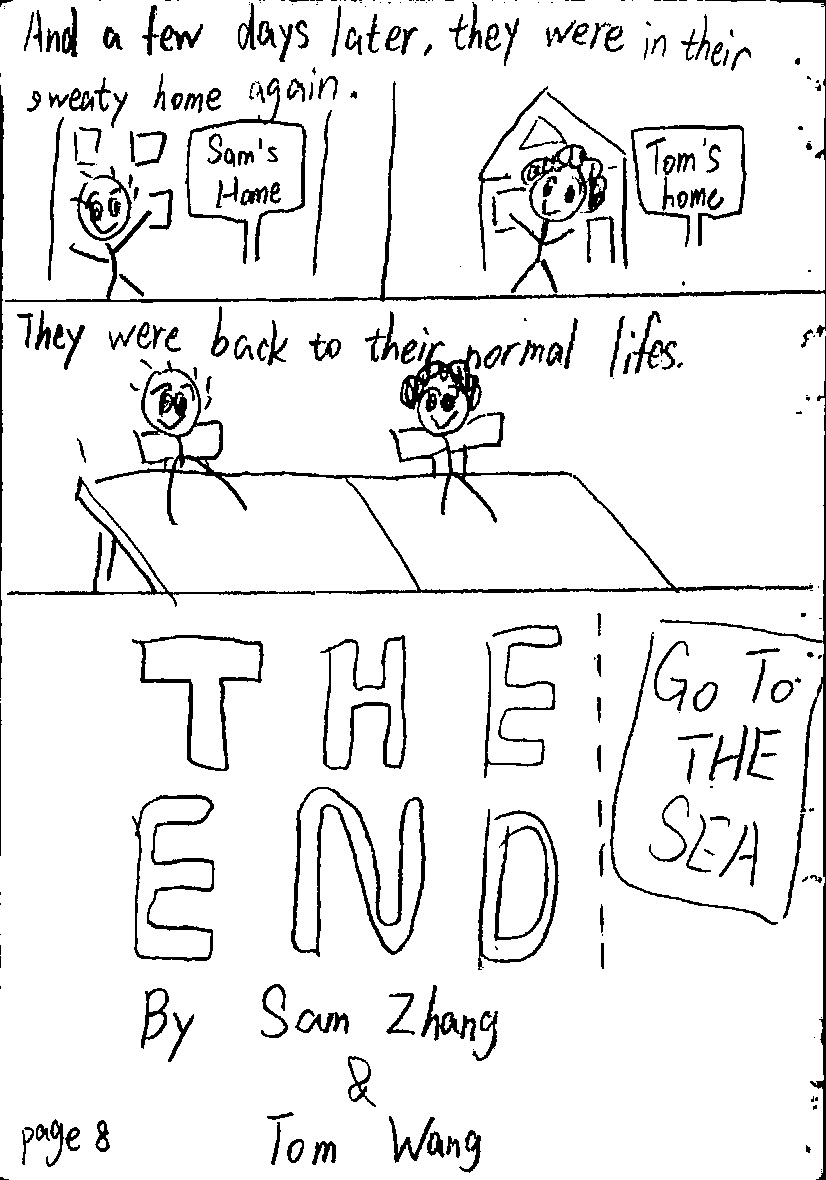 And a few days later, they were in their
sweaty home again.
Sam's
Home
Tom's
home
They were back to their normal lifes.
THE
END
GO TO
THE
SEA
By Sam Zhang
&
Tom Wang
page 8